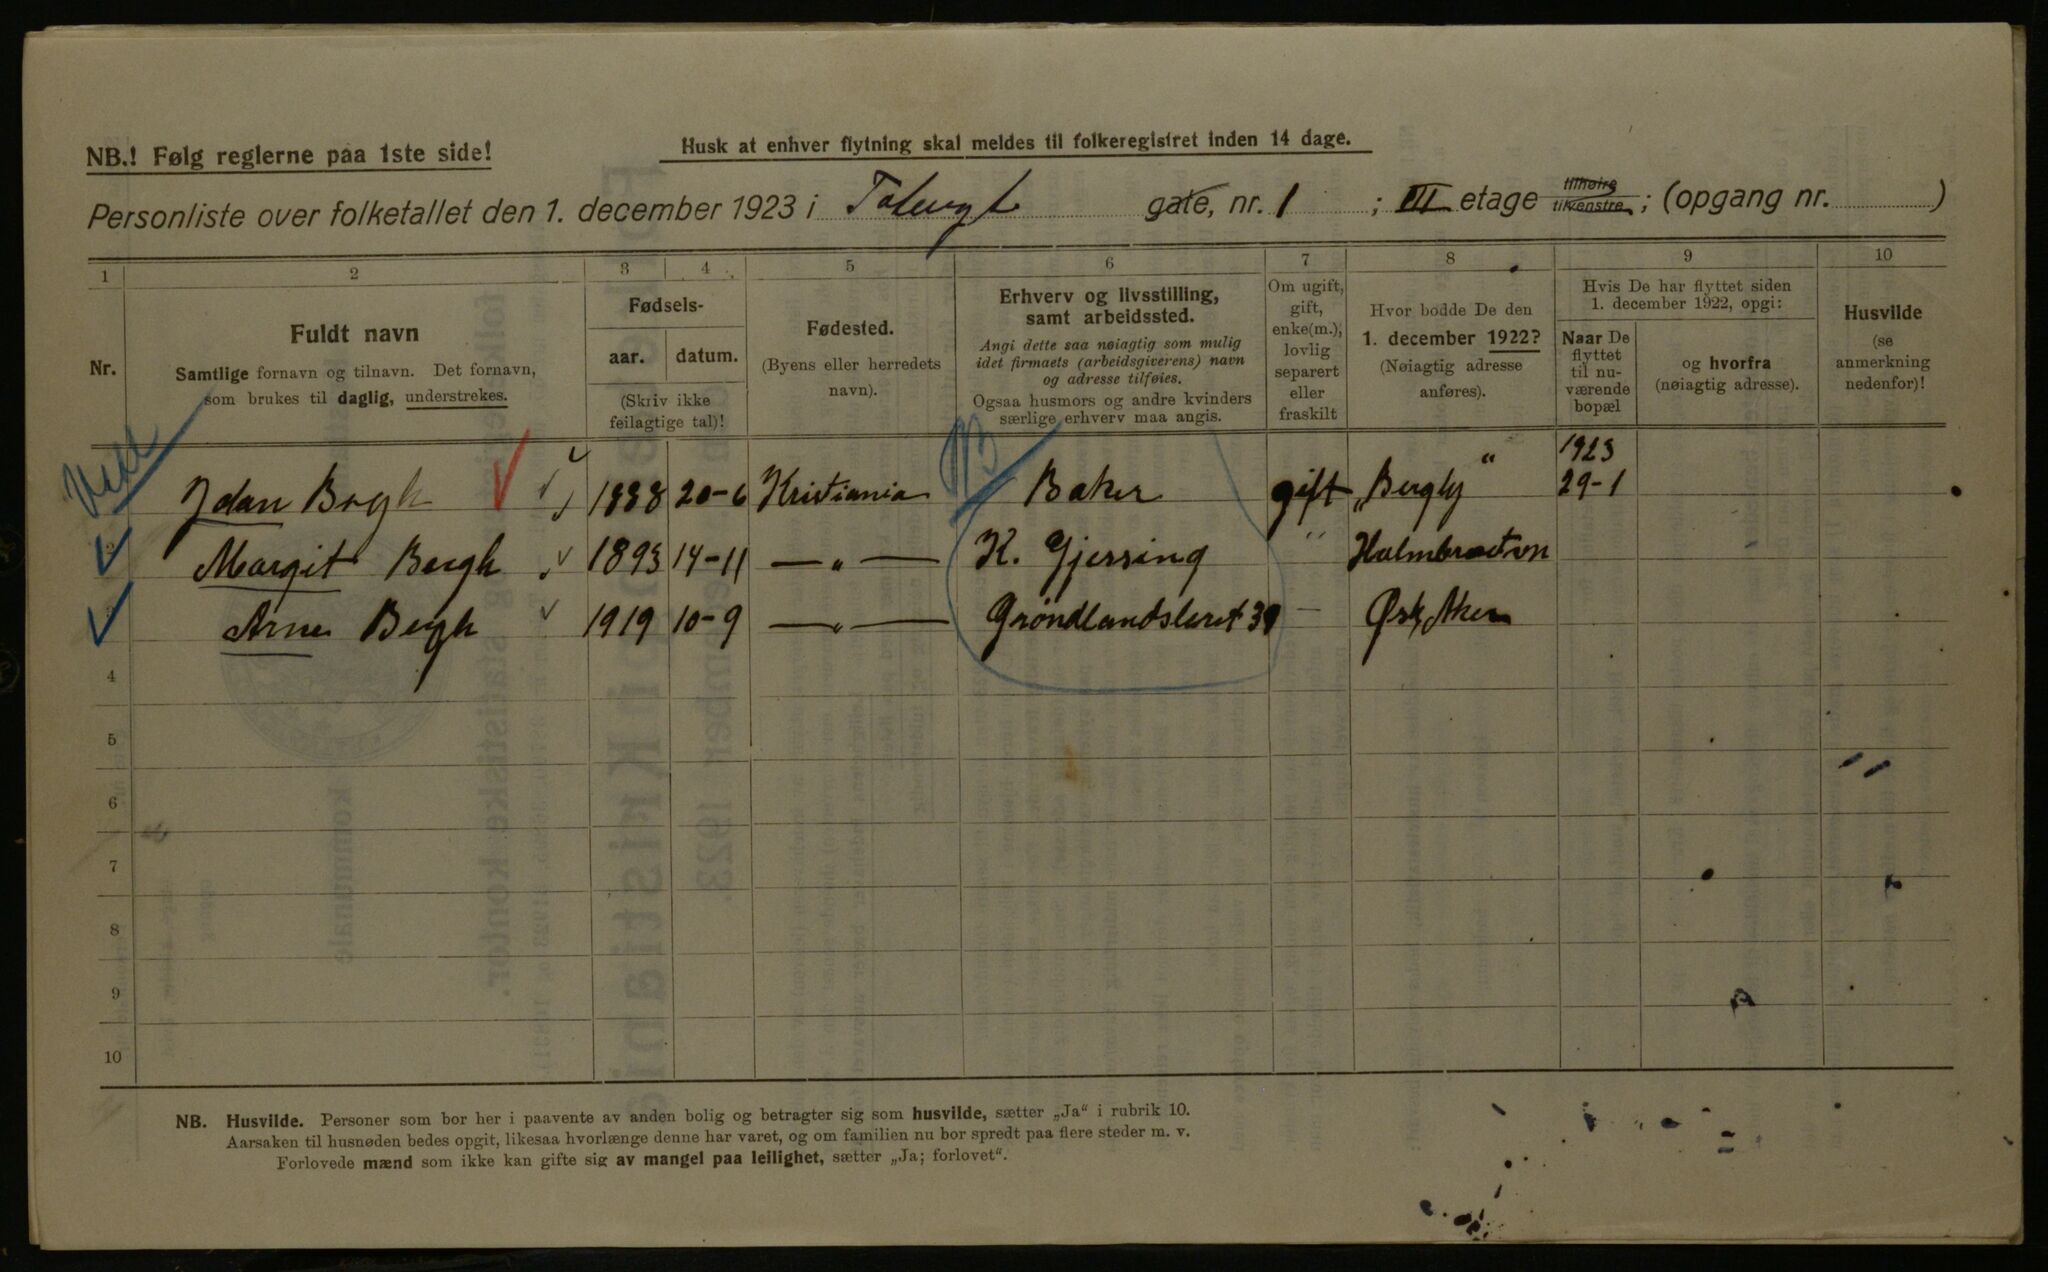 NB.! Følg reglerne paa 1ste side!
Husk at enhver flytning skal meldes til folkeregistret inden 14 dage.
Personliste over folketallet den 1. december 1923 i gate, nr. 1 ; III etage tilhøire tilvenstre ; (opgang nr. )
1 2 3 4 5 6 7 8 9 10
Nr.
Fuldt navn
Samtlige fornavn og tilnavn. Det fornavn,
som brukes til daglig, understrekes.
Fødsels-
aar. datum.
(Skriv ikke
feilagtige tal)!
Fødested.
(Byens eller herredets
navn).
Erhverv og livsstilling,
samt arbeidssted.
Angi dette saa nøiagtig som mulig
idet firmaets (arbeidsgiverens) navn
og adresse tilføies.
Ogsaa husmors og andre kvinders
særlige erhverv maa angis.
Om ugift,
gift,
enke(m.),
lovlig
separert
eller
fraskilt
Hvor bodde De den
1. december 1922?
(Nøiagtig adresse
anføres).
Hvis De har flyttet siden
1. december 1922, opgi:
Naar De
flyttet
til nu-
værende
bopæl
og hvorfra
(nøiagtig adresse).
Husvilde
(se
anmerkning
nedenfor)!
1923
Johan Bergh 1888 20-6 Kristiania Baker gift „Bergly" 29-1
Margit Bergh 1893 14-11 —„— K. Gjersing " Holmbroetvn
Arne Bergh 1919 10-9 —„— Gröndlandsleret 39 — Aker
4
5
6
7
8
9
10
NB. Husvilde. Personer som bor her i paavente av anden bolig og betragter sig som husvilde, sætter „Ja" i rubrik 10.
Aarsaken til husnøden bedes opgit, likesaa hvorlænge denne har varet, og om familien nu bor spredt paa flere steder m. v.
Forlovede mænd som ikke kan gifte sig av mangel paa leilighet, sætter „Ja; forlovet".